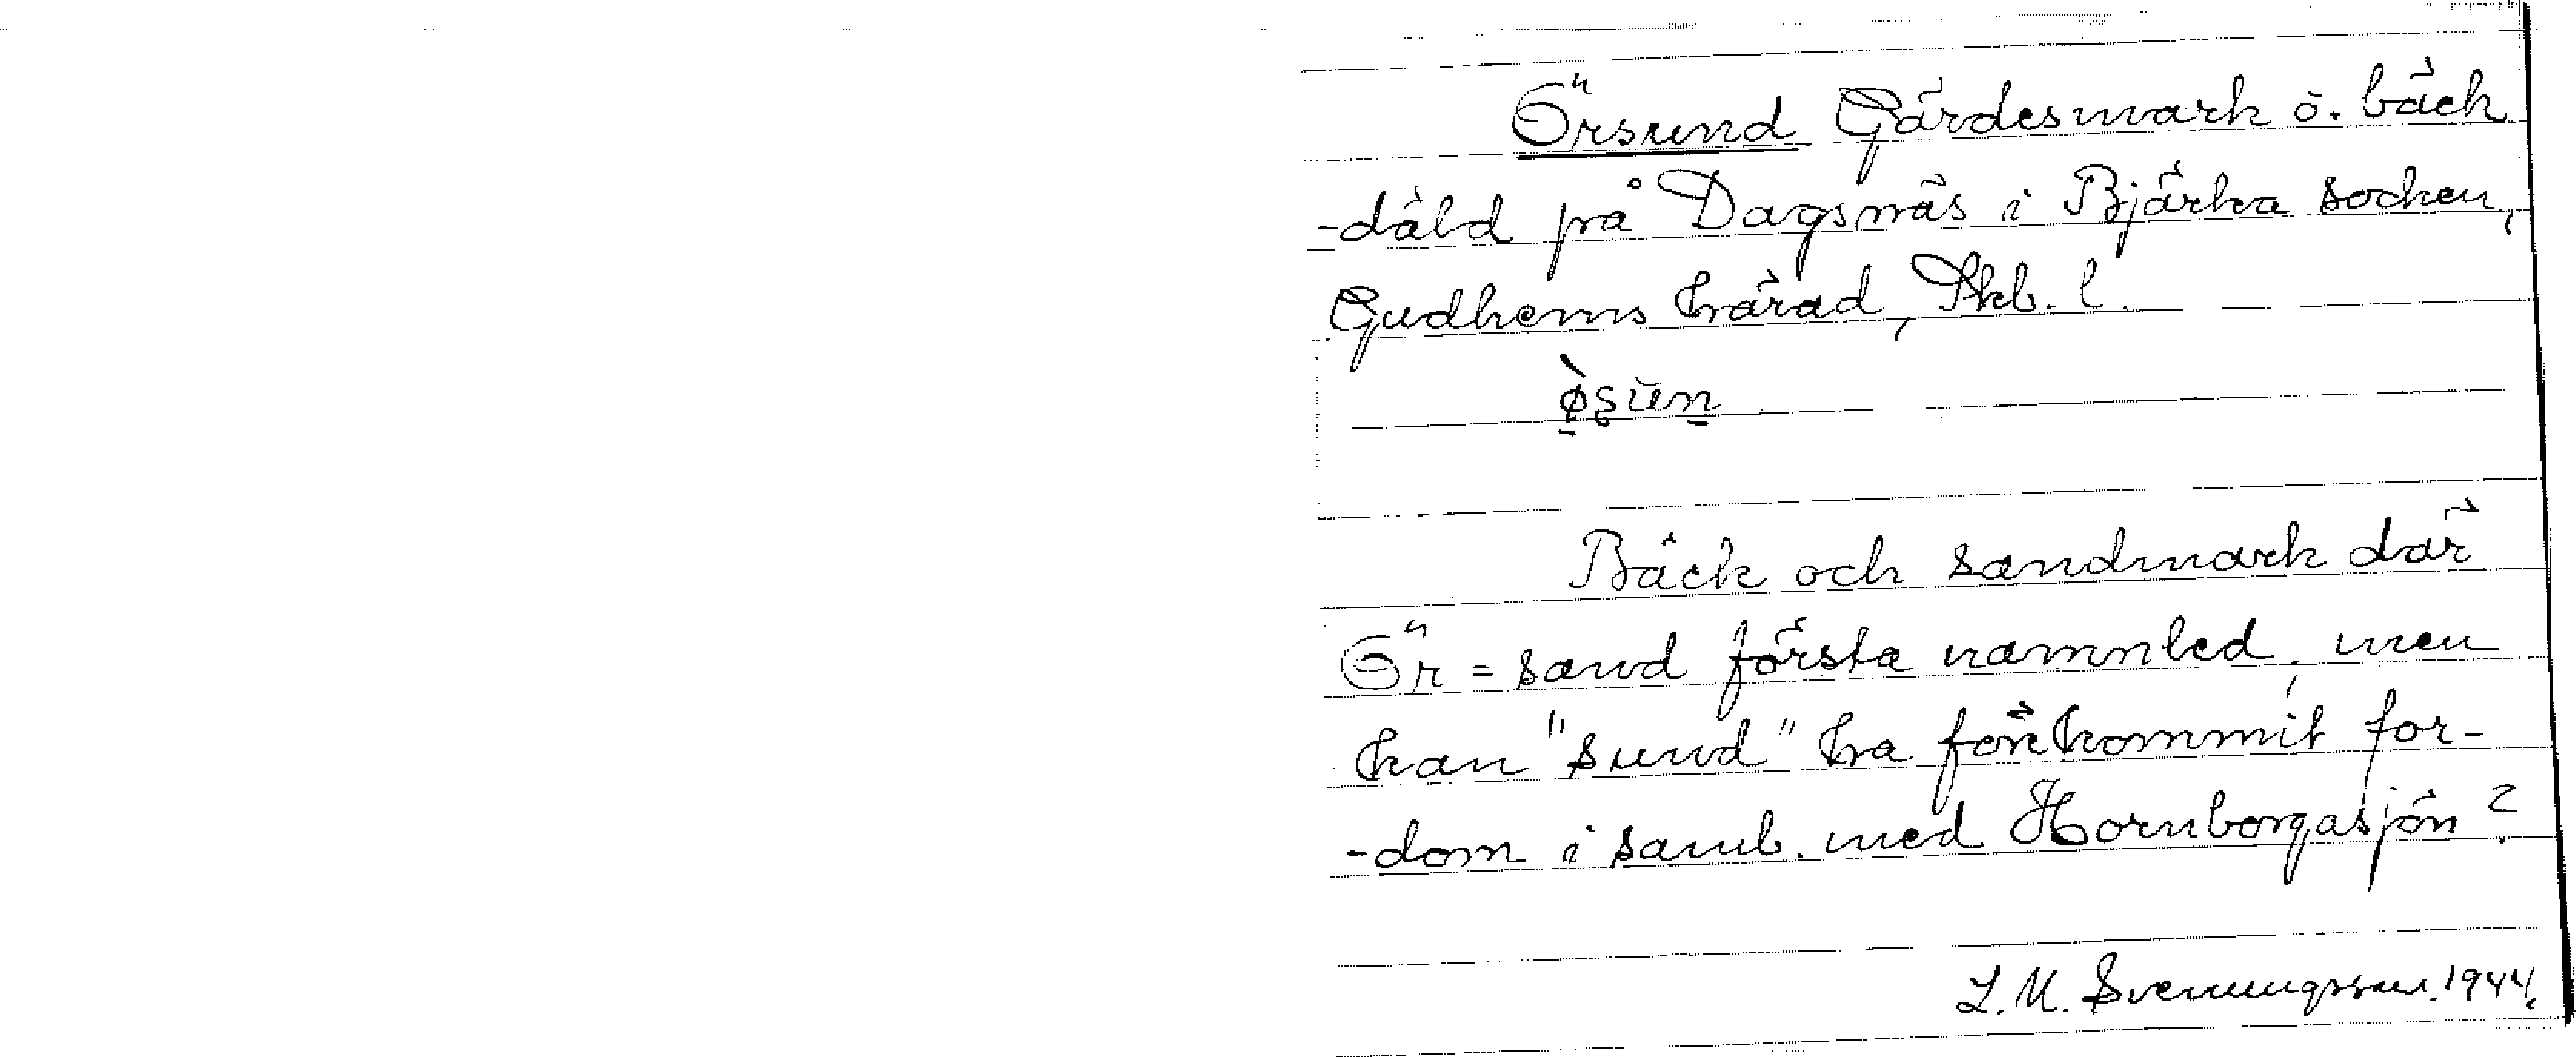 Örsund Gärdesmark o. bäck
-däld på Dagsnäs i Bjärka socken,
Gudhems härad, Skb. l.
Bäck och sandmark där
Ör = sand första namnled, men
kan "sund" ha förekommit for-
-dom i samb. med Hornborgasjön?
L. M. Svenungsson. 1944.